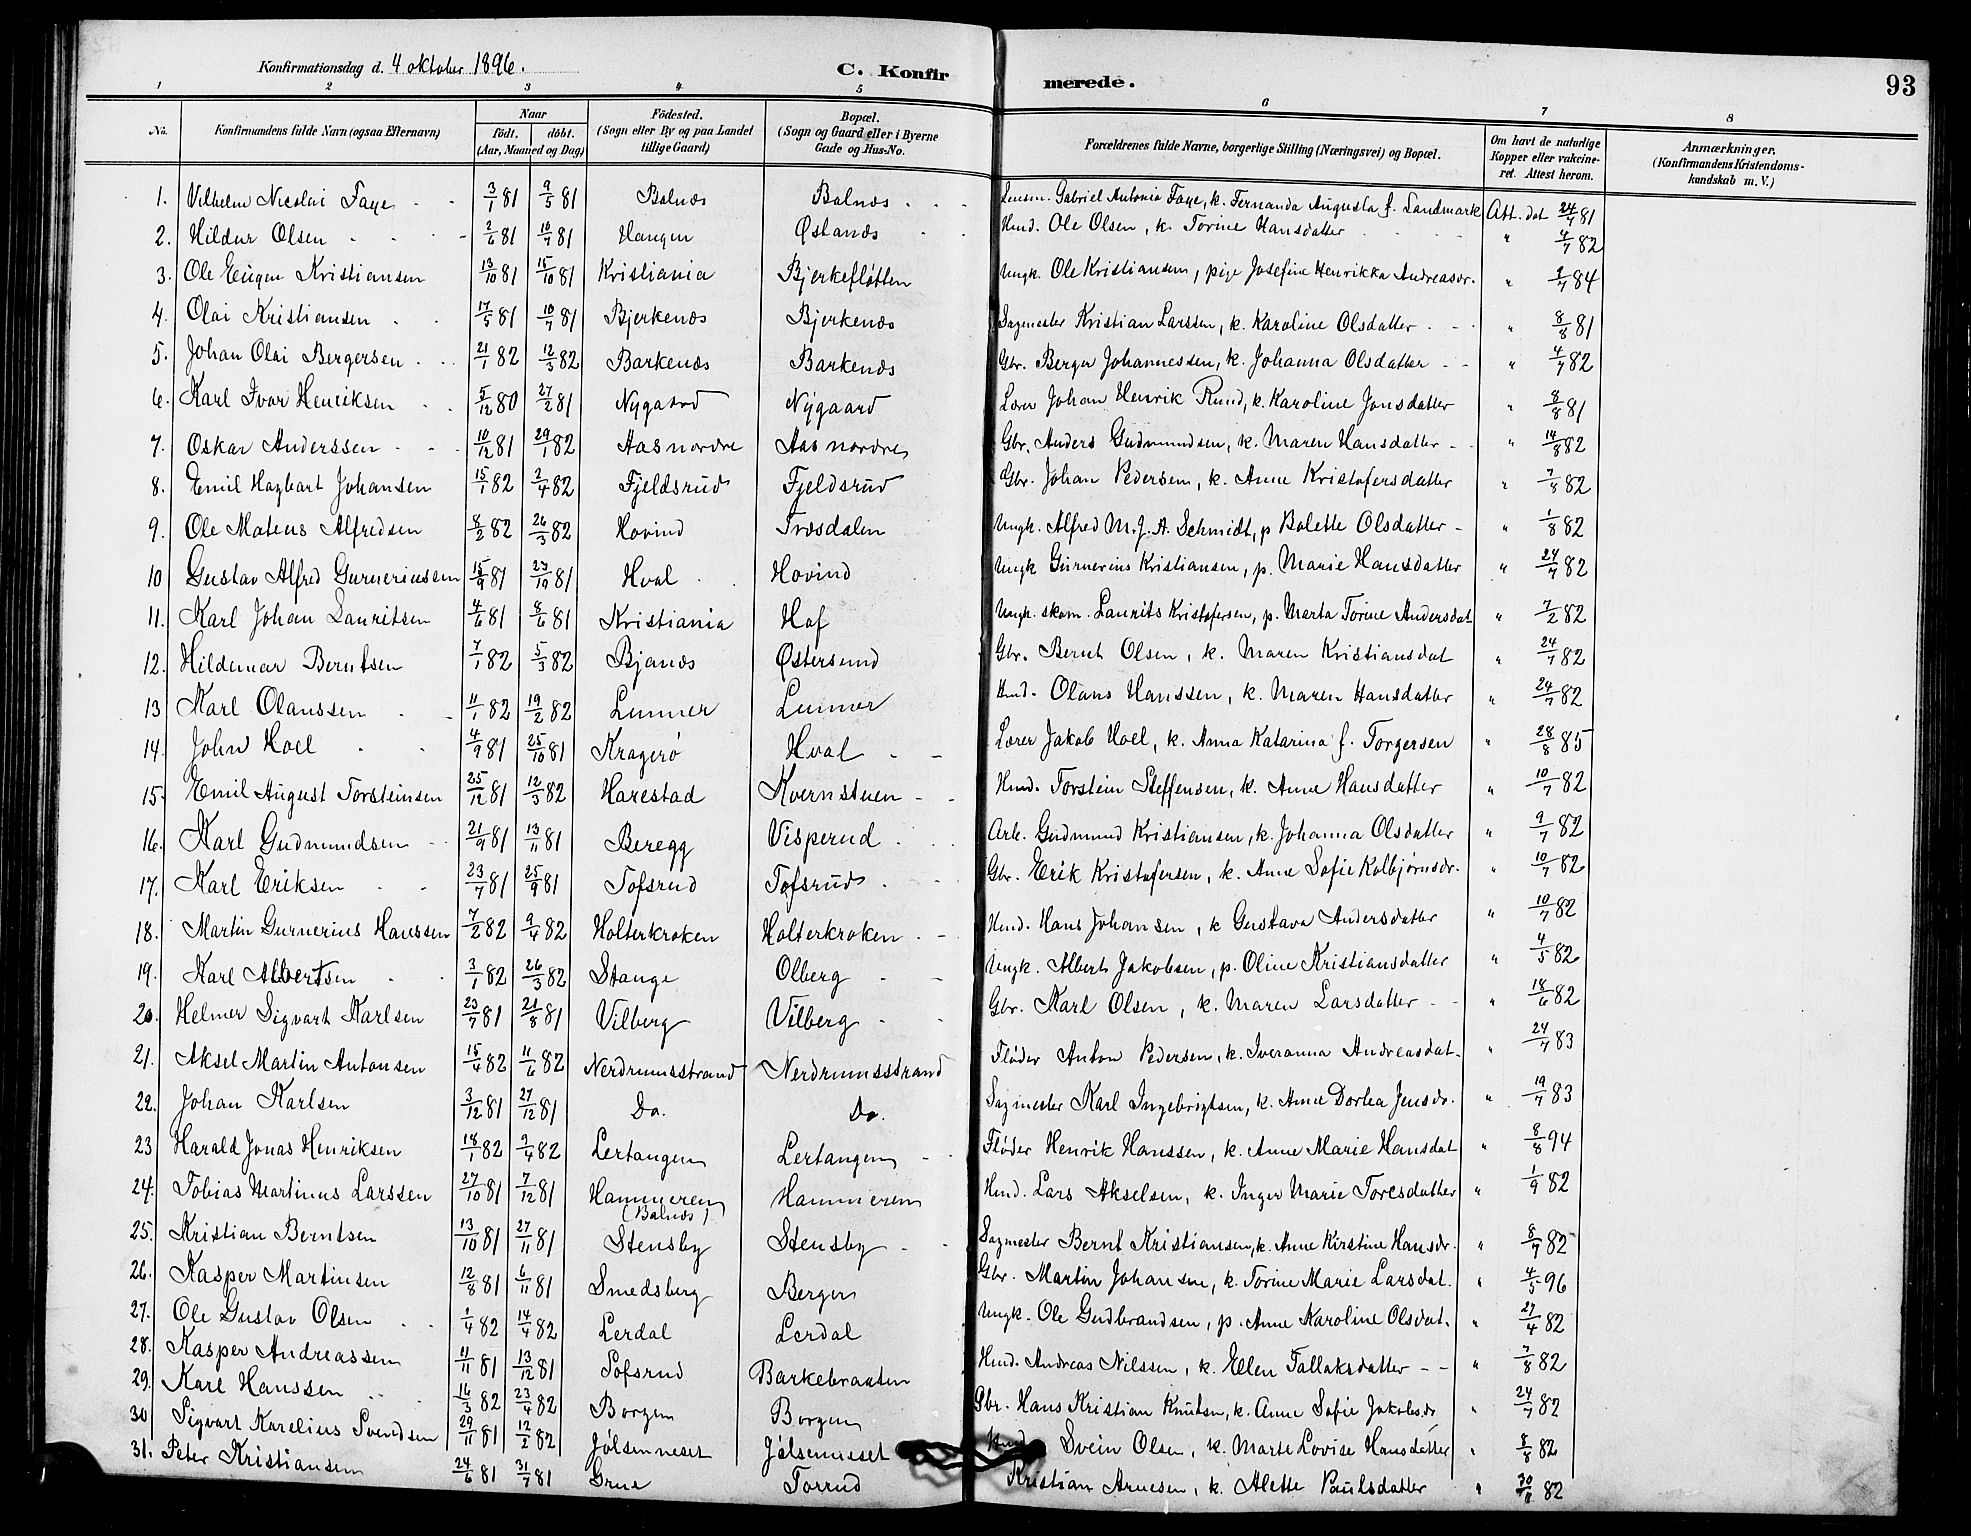 Konfirmationsdag d. 4 oktober 1896. C. Konfirmerede. 93
1 2 3 4 5 6 7 8
No. Konfirmandens fulde Navn (ogsaa Efternavn) Naar født. døbt. (Aar, Maaned og Dag) Fødested. (Sogn eller By og paa Landet tillige Gaard) Bopæl. (Sogn og Gaard eller i Byerne Gade og Hus-No. Forældrenes fulde Navne, borgerlige Stilling (Næringsvei) og Bopæl. Om havt de naturlige Kopper eller vakcineret. Attest herom. Anmærkninger. (Konfirmandens Kristendomskundskab m. V.)
1. Vilhelm Nicolai Faye 3/1 81 9/5 81 Balnæs Balnæs Lensm. Gabriel Antonio Faye, k. Fernanda Augusta f. Landmark Att. dat 24/7 81
2. Hildur Olsen 2/6 81 10/7 81 Haugen Østanæs Hmd. Ole Olsen, k. Torine Hansdatter " 4/7 82
3. Ole Eugen Kristiansen 13/10 81 15/10 81 Kristiania Bjerkefløtten Ungk. Ole Kristiansen, pige Josefine Henrikka Andreasdr. " 2/7 84
4. Olai Kristiansen 17/5 81 10/7 81 Bjerkenæs Bjerkenæs Sagmester Kristian Larssen, k. Karoline Olsdatter " 8/8 81
5. Johan Olai Bergersen 21/1 82 12/3 82 Barkenæs Barkenæs Gbr. Berger Johannessen, k. Johanna Olsdatter " 4/7 82
6. Karl Ivar Henriksen 5/12 80 27/2 81 Nygaard Nygaard Lærer Johan Henrik Rund, k. Karoline Jonsdatter " 8/8 81
7. Oskar Anderssen 10/12 81 29/1 82 Aas nordre Aas nordre Gbr. Anders Gudmundsen, k. Maren Hansdatter " 14/8 82
8. Emil Hagbart Johansen 15/1 82 2/4 82 Fjeldsrud Fjeldsrud Gbr. Johan Pedersen, k. Anne Kristofersdatter " 7/8 82
9. Ole Mateus Alfredsen 8/2 82 26/3 82 Hovind Træsdalen Ungk. Alfred M. J. A. Schmidt, p Bolette Olsdatter " 1/8 82
10 Gustav Alfred Gurneriussen 15/9 81 23/10 81 Hval Hovind Ungk Gurnerius Kristiansen, p. Marie Hansdatter " 24/7 82
11. Karl Johan Lauritsen 4/6 81 8/6 81 Kristiania Hof Ungk. skom. Laurits Kristofersen, p. Marta Torine Andersdat " 7/2 82
12. Hildemar Berntsen 7/1 82 5/3 82 Bjanæs Østersund Gbr. Bernt Olsen, k. Maren Kristiansdat " 24/7 82
13 Karl Olaussen 11/1 82 19/2 82 Lunner Lunner Hmd. Olaus Hanssen, k. Maren Hansdatter " 24/7 82
14. John Hoel 4/9 81 25/10 81 Kragerø Hval Lærer Jakob Hoel, k. Anna Katarina f. Torgersen " 28/8 85
15. Emil August Torsteinsen 25/12 81 12/3 82 Harestad Kvernstuen Hmd. Torstein Steffensen, k. Anne Hansdatter " 10/7 82
16. Karl Gudmundsen 21/9 81 13/11 81 Beregg Visperud Arb. Gudmund Kristiansen, k. Johanna Olsdatter " 9/7 82
17. Karl Eriksen 23/7 81 25/9 81 Tofsrud Tofsrud Gbr. Erik Kristofersen, k. Anne Sofie Kolbjørnsdr. " 10/7 82
18. Martin Gurnerius Hanssen 7/2 82 9/4 82 Holterkroken Holterkroken Hmd. Hans Johansen, k Gustava Andersdatter " 10/7 82
19. Karl Albertsen 3/1 82 26/3 82 Stange Olberg Ungk. Albert Jakobsen, p. Oline Kristiansdatter " 4/5 82
20. Helmer Sigvart Karlsen 23/7 81 21/8 81 Vilberg Vilberg Gbr. Karl Olsen, k. Maren Larsdatter " 18/6 82
21. Aksel Martin Antonsen 15/4 82 11/6 82 Nerdrumsstrand Nerdrumsstrand Fløder Anton Pedersen, k. Iveranna Andreasdat. " 24/7 83
22. Johan Karlsen 3/12 81 27/12 81 Do. Do. Sagmester Karl Ingebrigtsen, k. Anne Dorthea Jensdr. " 19/7 83
23 Harald Jonas Henriksen 18/1 82 9/4 82 Lertangen Lertangen Fløder Henrik Hanssen, k. Anne Marie Hansdat " 8/8 94
24. Tobias Martinus Larssen 27/10 81 7/12 81 Hammeren (Balnæs) Hammeren Hmd. Lars Akselsen, k. Inger Marie Toresdatter " 1/9 82
25. Kristian Berntsen 13/10 81 27/11 81 Stensby Stensby Sagmester Bernt Kristiansen, k. Anne Kirstine Hansdr. " 8/7 82
26. Kasper Martinsen 12/8 81 6/11 81 Smedsberg Bergen Gbr. Martin Johansen, k. Torine Marie Larsdat. " 4/5 96
27. Ole Gustav Olsen 1/4 82 14/4 82 Lerdal Lerdal Ungk. Ole Gudbrandsen, p. Anne Karoline Olsdat. " 27/4 82
28. Kasper Andreassen 11/11 81 13/12 81 Tofsrud Barkebraaten Hmd. Andreas Nilssen, k. Ellen Tallaksdatter " 7/8 82
29. Karl Hanssen 16/3 82 23/4 82 Borgen Borgen Gbr. Hans Kristian Knutsen, k. Anne Sofie Jakobsdr " 24/7 82
30 Sigvart Karelius Svendsen 29/11 81 12/2 82 Jølsenneset Jølsenneset Hmd Svein Olsen, k. Marte Lovise Hansdatter " 8/8 82
31. Peter Kristiansen 24/6 81 31/7 81 Grue Torrud Kristian Arnesen, k. Alette Paulsdatter " 30/11 82